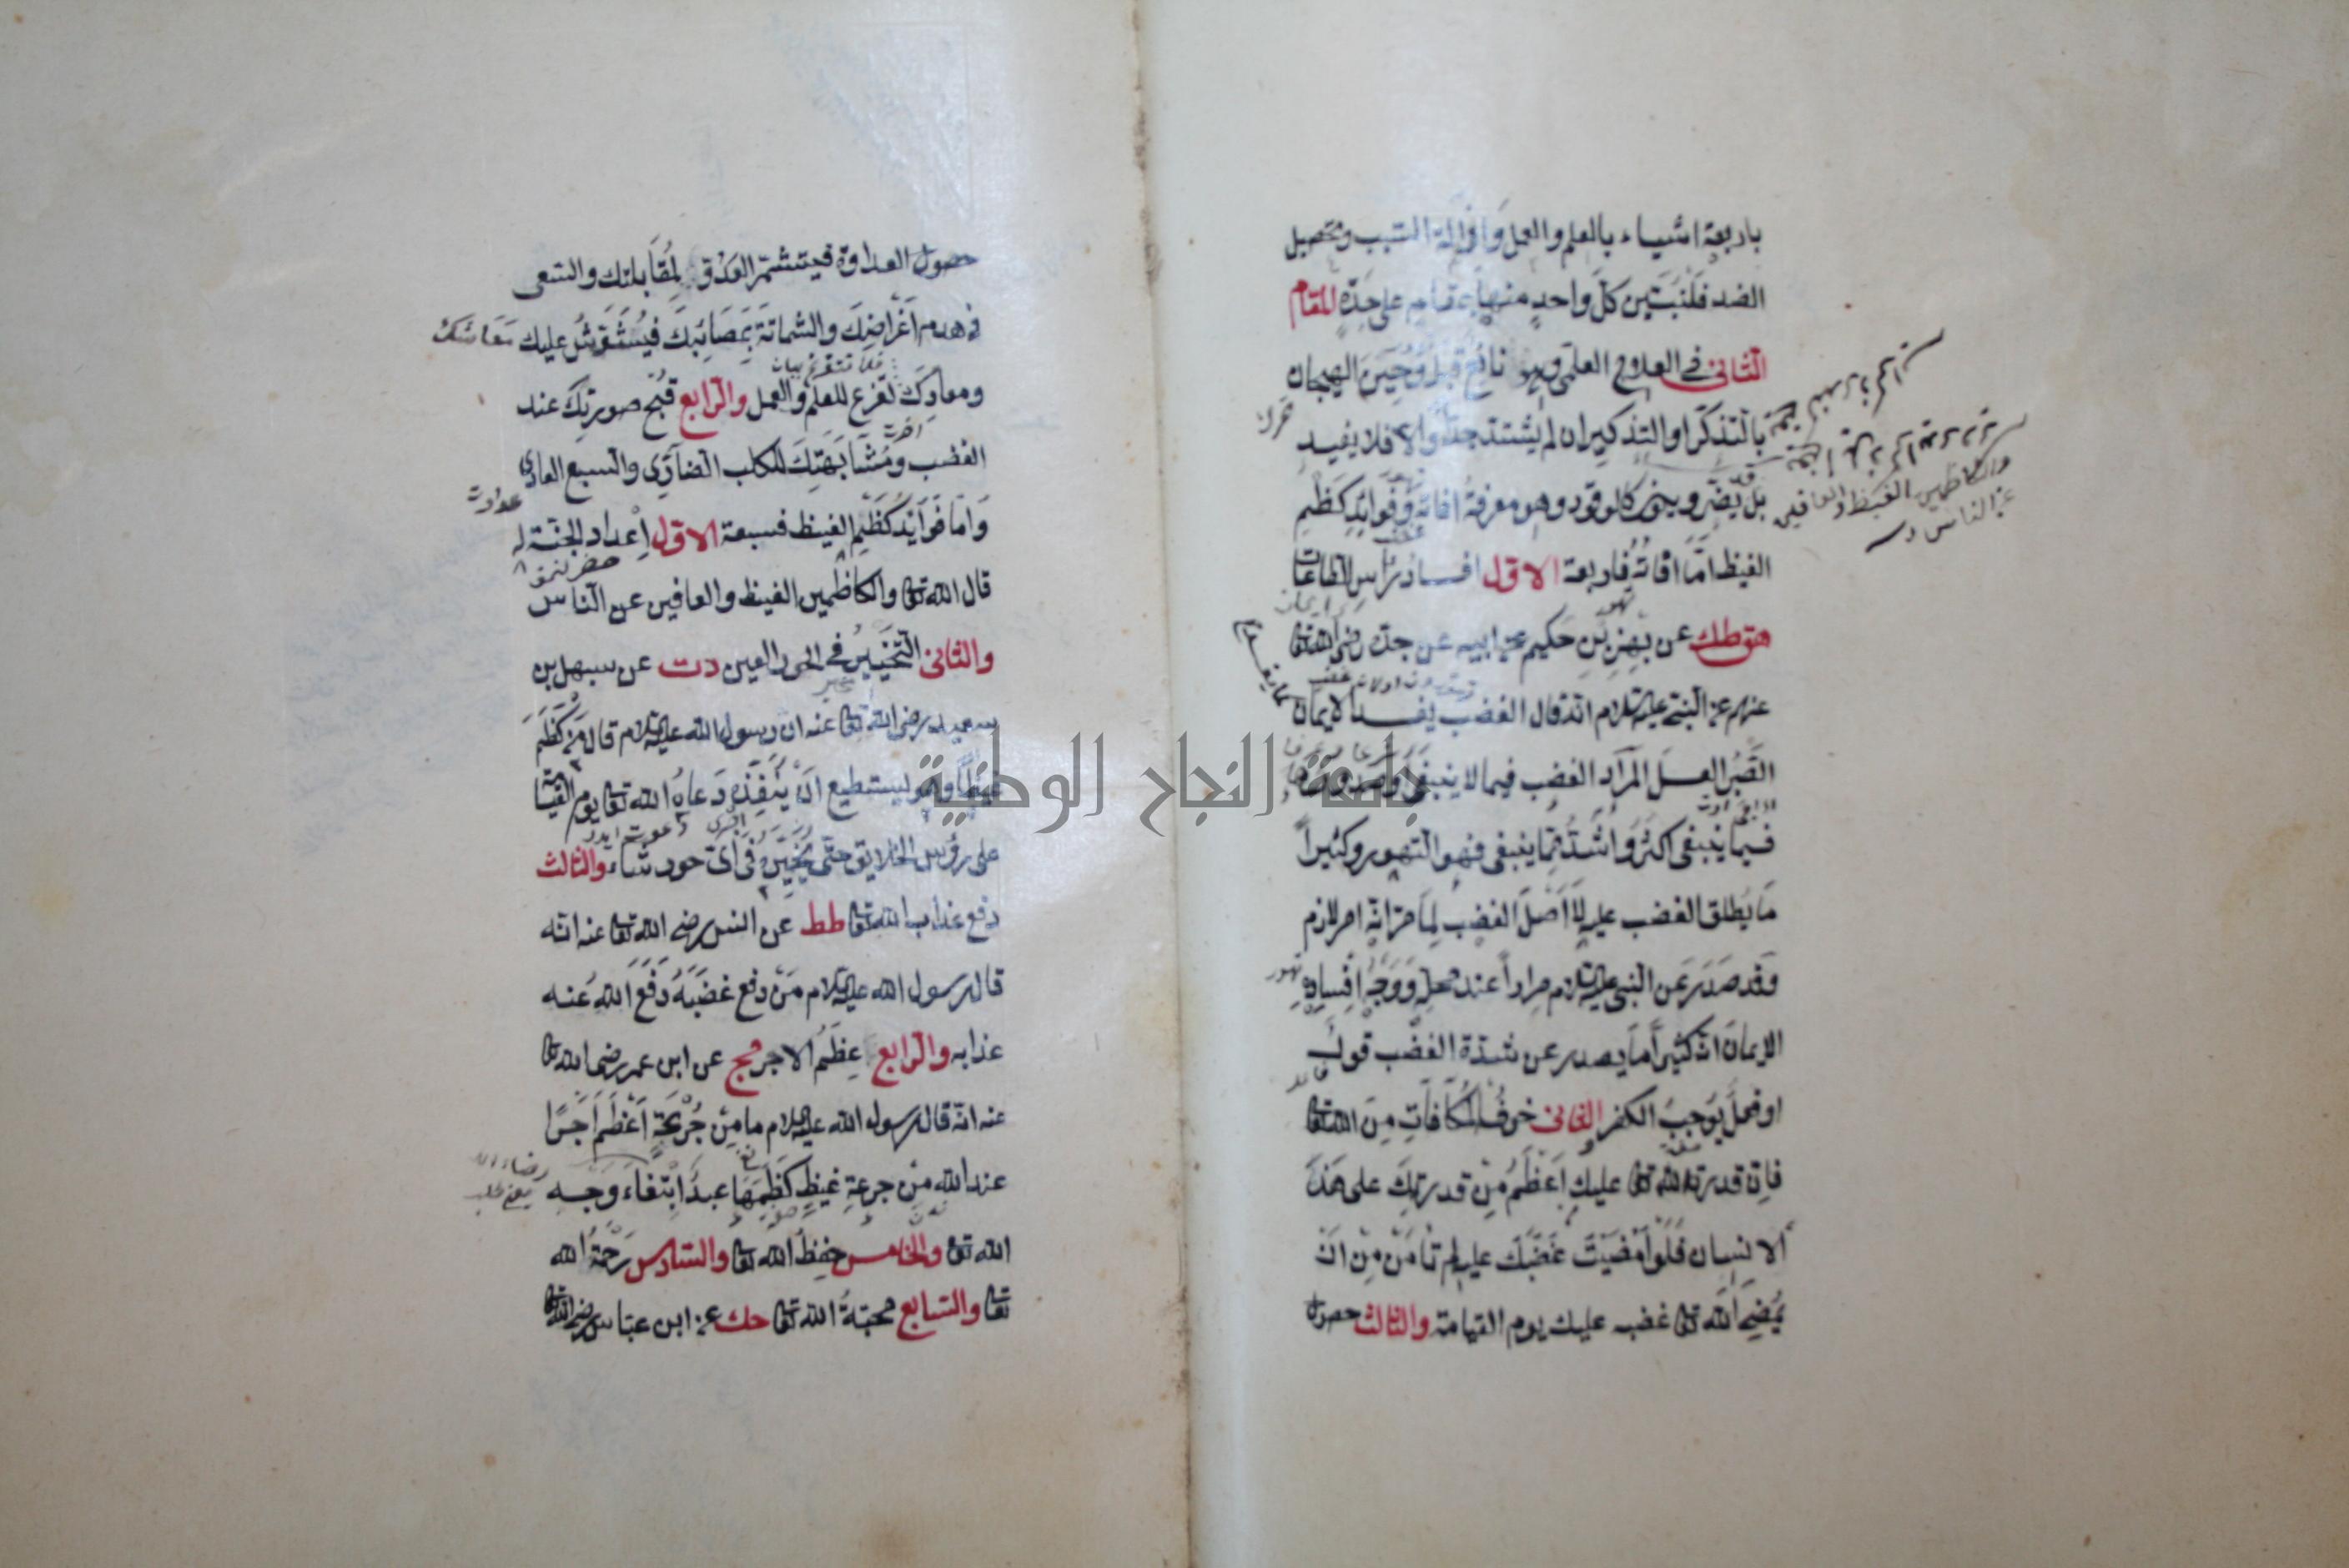 باربعة اشياء بالعلم والعمل وازالة السبب وتحصيل
الضد فلنبين كل واحد منها بمقام على حدة المقام
الثانى فى العلاج العلمى وهو نافع قبل وحين الهيجان
بالتذكر او التذكير ان لم يشتد جدا والا فلا يفيد
بل يضر ويصير كالوقود وهو معرفة افاته وفوائد كظم
الغيظ اما افاته فاربعة الاول افساد رأس الطاعات
هق طك عن بهز بن حكيم عن ابيه عن جده رضى الله تعالى
عنهم عن النبى عليه السلام انه قال الغضب يفسد الايمان
الصبر العسل المراد الغضب فيما لا ينبغى او صدوره
فيما ينبغى اكثر واشد مما ينبغى فهو التهور وكثيرا
ما يطلق الغضب عليه لا اصل الغضب لما مر انه امر لازم
وقد صدر عن النبى عليه السلام مرارا عند محله ووجه افساده
الايمان انه كثيرا ما يصدر عن شدة الغضب قول
او فعل يوجب الكفر الثانى خوف المكافات من الله تعالى
فان قدرة الله تعالى عليك اعظم من قدرتك على هذا
الانسان فلو امضيت غضبك عليه لم تأمن من ان
يمضى الله تعالى غضبه عليك يوم القيامة والثالث حصول
والكاظمين الغيظ والعافين
عن الناس
حصول العداوة فيتشمر العدو لمقابلتك والسعى
فى هدم اغراضك والشماتة بمصائبك فيشوش عليك معاشك
ومعادك تفرغ للعلم والعمل والرابع قبح صورتك عند
الغضب ومشابهتك للكلب الضارى والسبع العادى
واما فوائد كظم الغيظ فسبعة الاول اعداد الجنة له
قال الله تعالى والكاظمين الغيظ والعافين عن الناس
والثانى التخيير فى الحور العين دت عن سهل بن
سعيد رضى الله تعالى عنه ان رسول الله عليه السلام قال من كظم
غيظا وهو يستطيع ان ينفذه دعاه الله تعالى يوم القيمة
على رؤس الخلايق حتى يخيره فى اى حور شاء والثالث
دفع عذاب الله تعالى طط عن انس رضى الله تعالى عنه انه
قال رسول الله عليه السلام من دفع غضبه دفع الله عنه
عذابه والرابع عظم الاجر مج عن ابن عمر رضى الله تعالى
عنه انه قال رسول الله عليه السلام ما من جرعة اعظم اجرا
عند الله من جرعة غيظ كظمها عبد ابتغاء وجه
الله تعالى والخامس حفظ الله تعالى والسادس رحمة الله
تعالى والسابع محبة الله تعالى حك عن ابن عباس رضى الله تعالى
جامعة النجاح الوطنية